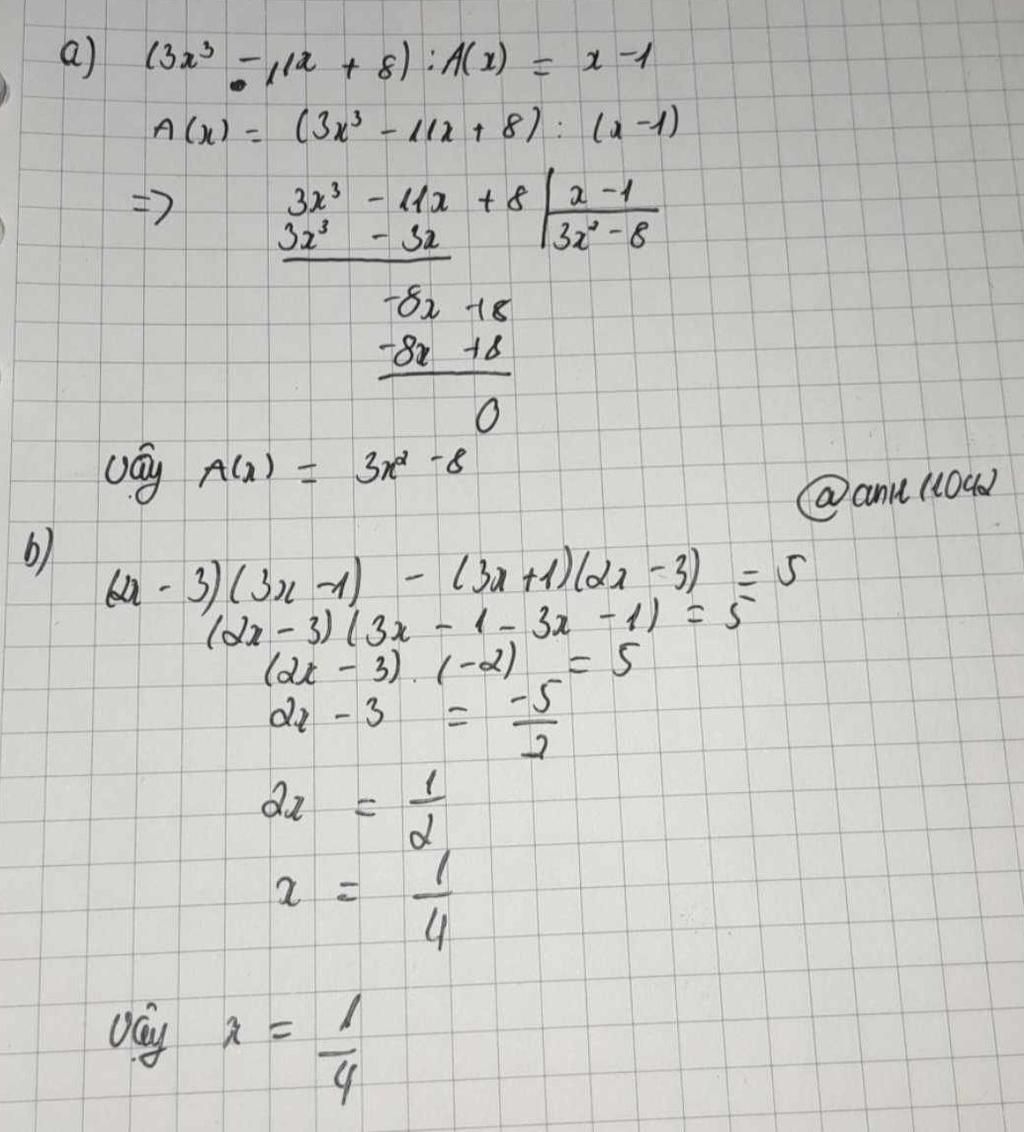 a) (3x³ - 11x + 8) : A(x) = x - 1
A(x) = (3x³ - 11x + 8) : (x - 1)
=> 3x³ - 11x + 8 | x - 1
3x³ - 3x | 3x² - 8
-8x + 8
-8x + 8
0
Vậy A(x) = 3x² - 8
b)
(2x - 3)(3x - 1) - (3x + 1)(2x - 3) = 5
(2x - 3)(3x - 1 - 3x - 1) = 5
(2x - 3) . (-2) = 5
2x - 3 = -5/2
2x = 1/2
x = 1/4
Vậy x = 1/4